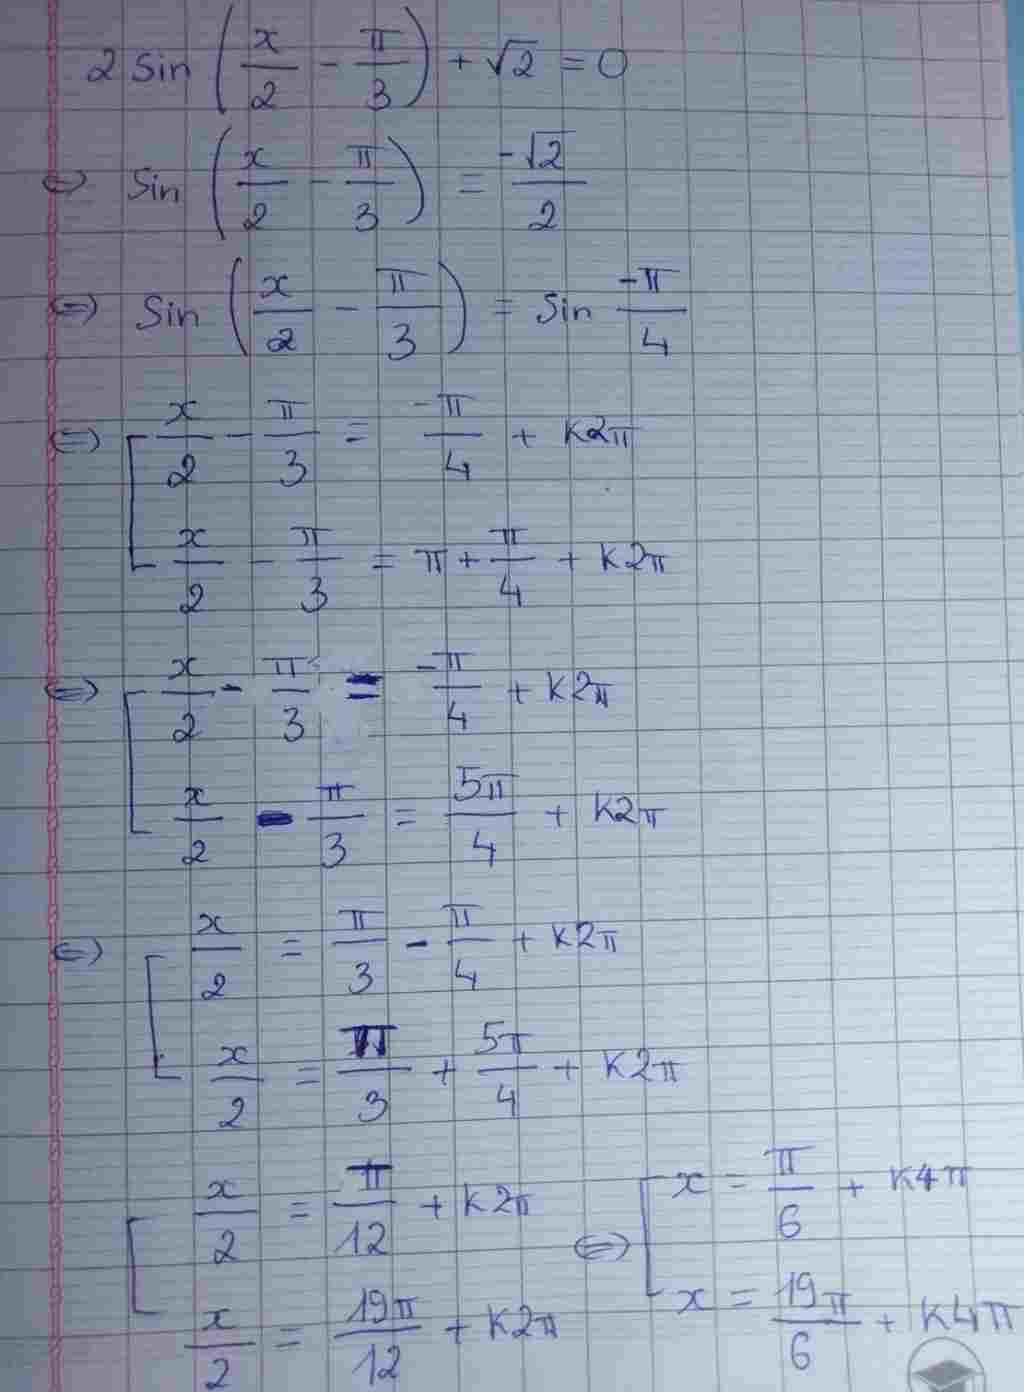 2 Sin (x/2 - π/3) + √2 = 0
⇔ Sin (x/2 - π/3) = -√2/2
⇔ Sin (x/2 - π/3) = Sin -π/4
⇔ [ x/2 - π/3 = -π/4 + K2π
x/2 - π/3 = π + π/4 + K2π
⇔ [ x/2 - π/3 = -π/4 + K2π
x/2 - π/3 = 5π/4 + K2π
⇔ [ x/2 = π/3 - π/4 + K2π
x/2 = π/3 + 5π/4 + K2π
[ x/2 = π/12 + K2π ⇔ [ x = π/6 + K4π
x/2 = 19π/12 + K2π x = 19π/6 + K4π